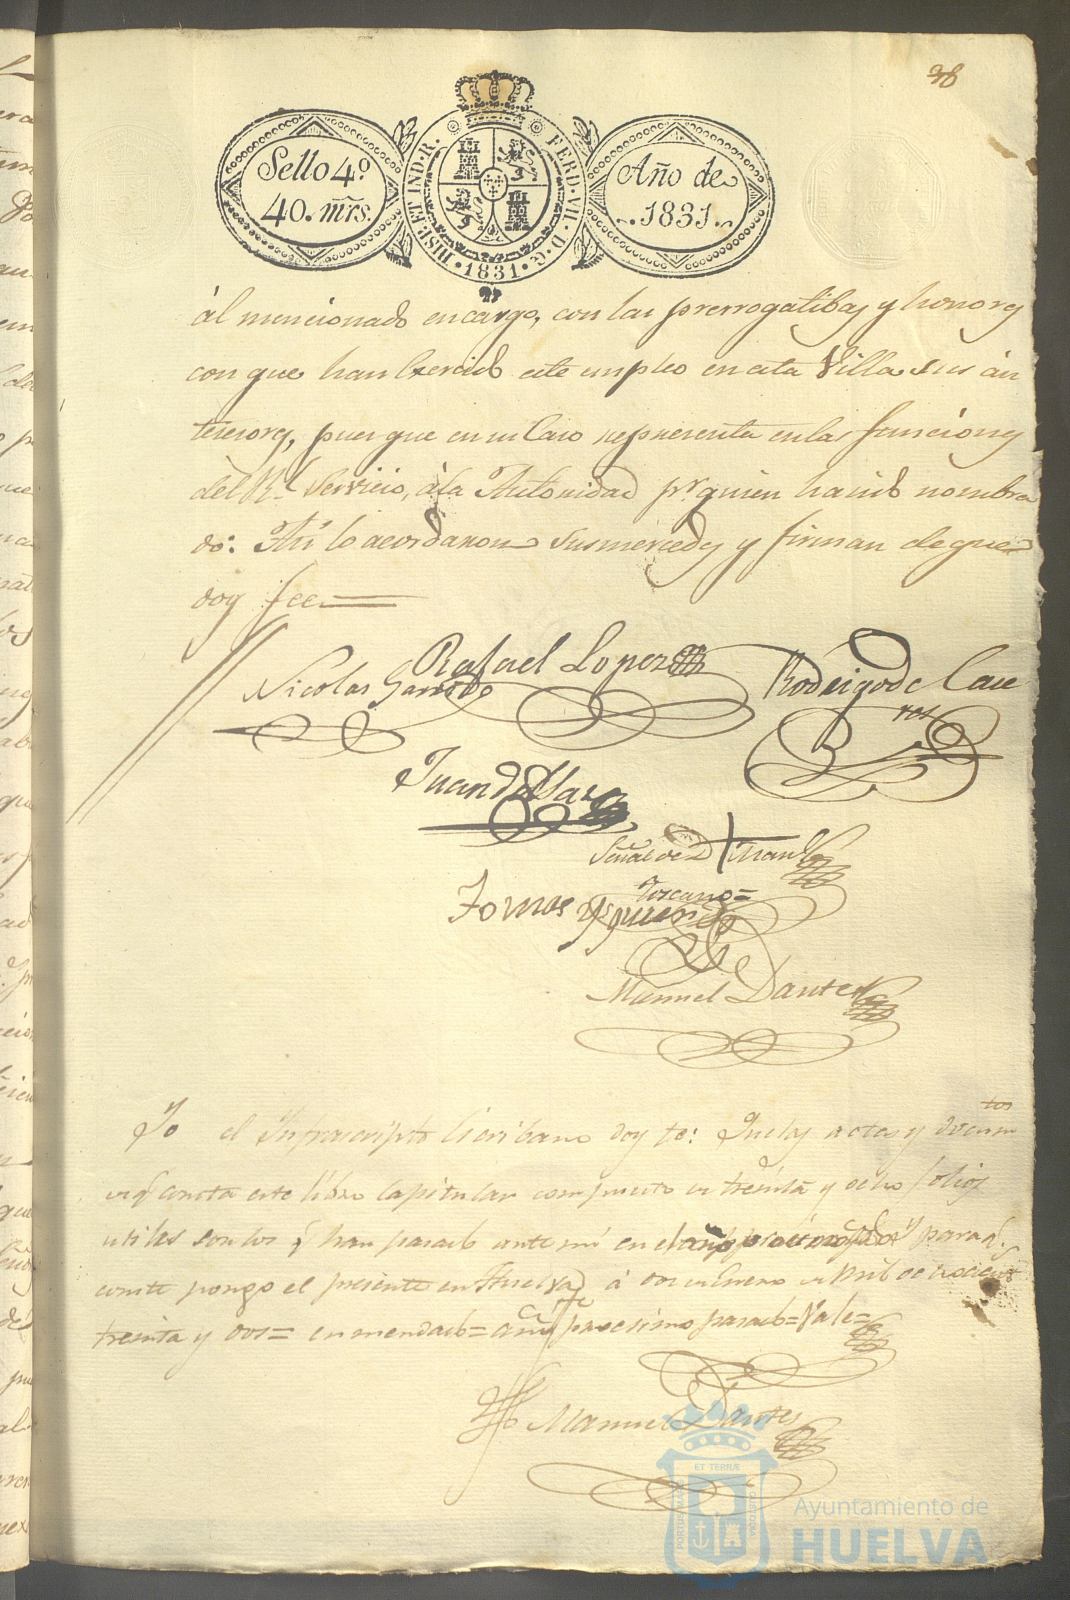 38
Sello 4º
40. mrs.
HISP. ET IND. R.
FERD. VII. D. G.
1831
Año de
1831.
ál mencionado encargo, con las prerrogatibas y honores
con que han Exercido este empleo en esta Villa sus án
tesesores, pues que en su Caso representa en las funciones
del Rl. Servicio, á la Autoridad pr. quien ha sido nombra
do: Así lo acordaron sus mercedes y firman de que
doy fee
Rafael Lopez
Nicolas Garrido
Rodrigo de Cace
res
Juan de
Señal de D + Man
Toscano=
Manuel Dantes
Yo el Infrascripto Escribano doy fe: Que las actas y docum
tos
en q consta este libro Capitular compuesto de treinta y ocho folios
utiles son los q han pasado ante mi en el año procsimo pasado y para q
conste pongo el presente en Huelva á dos de Enero de mil ochocientos
treinta y dos= enmendado= año procsimo pasado= Vale=
Manuel Dantes
PORTUS MARIS
ET TERRÆ
CUSTODIA
Ayuntamiento de
HUELVA